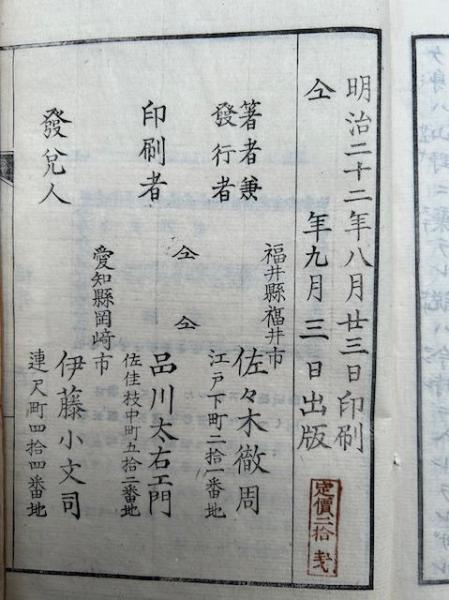 明治二十二年八月廿三日印刷
仝 年九月三日出版
定價二拾
著者兼
發行者
福井縣福井市
佐々木徹周
江戸下町二拾一番地
印刷者
仝 仝
品川太右エ門
佐佳枝中町五拾二番地
發兌人
愛知縣岡﨑市
伊藤小文司
連尺町四拾四番地